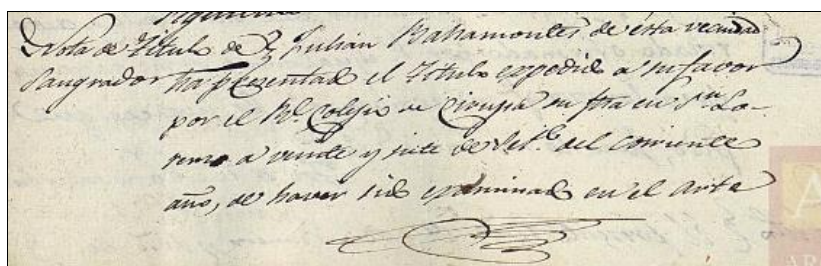 Nota de Titulo de Dn Julian Bahamontes de esta vecindad
Sangrador ha presentado el Titulo expedido a su favor
por el Rl. Colejio de Cirugia su fha en Sn Lo-
renzo a veinte y siete de Sete. del corriente
año, de haver sido examinado en el arte
A
AR